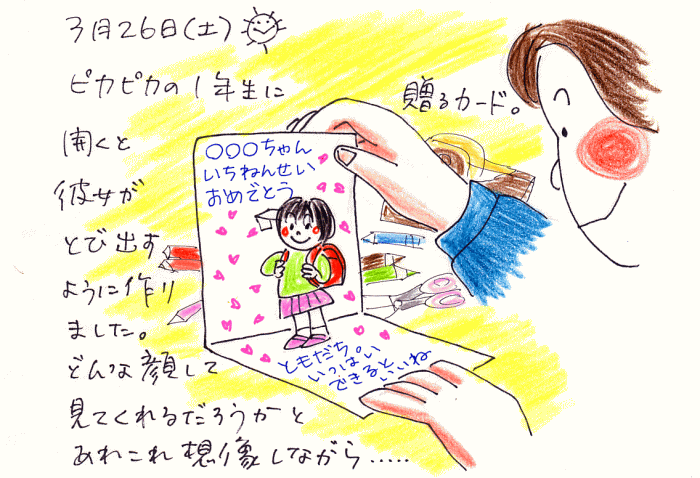 3月26日(土)
ピカピカの1年生に
贈るカード。
開くと
彼女が
とび出す
ように作り
ました。
どんな顔して
見てくれるだろうかと
あれこれ想像しながら.....
○○○ちゃん
いちねんせい
おめでとう
ともだち。
いっぱい
できると
いいね